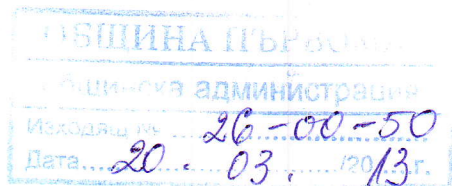 ОБЩИНА
Общинска администрация
Изходящ № 26-00-50
Дата 20. 03. /2013 г.